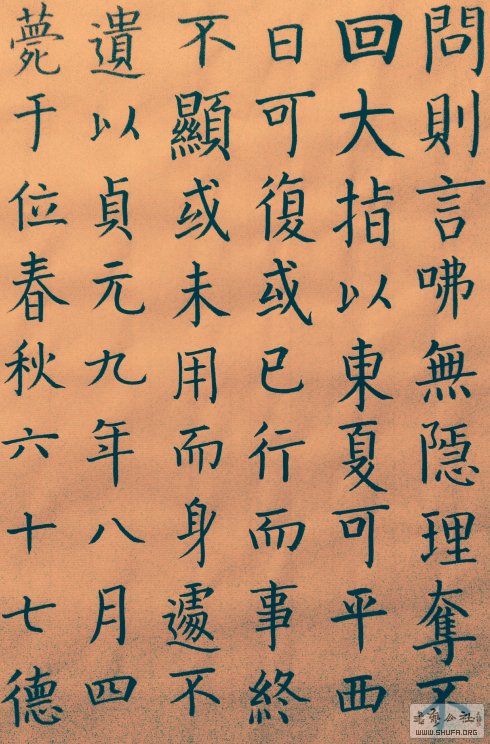 問則言咈無隱理奪不
回大指以東夏可平西
日可復或已行而事終
不顯或未用而身遽不
遺以貞元九年八月四
薨于位春秋六十七德
公社
WWW.SHUFA.ORG